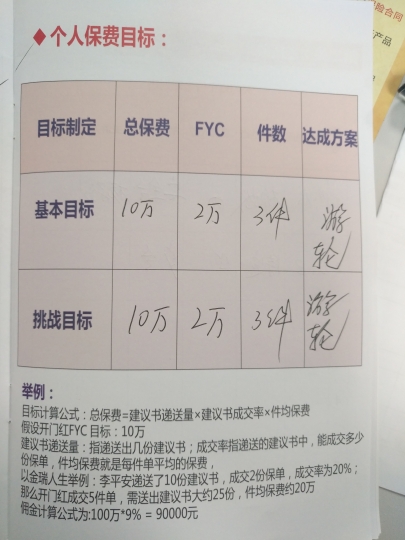 ◆个人保费目标：
险合同
产品
目标制定 总保费 FYC 件数 达成方案
基本目标 10万 2万 3件 游轮
挑战目标 10万 2万 3件 游轮
举例：
目标计算公式：总保费=建议书递送量×建议书成交率×件均保费
假设开门红FYC 目标：10万
建议书递送量：指递送出几份建议书；成交率指递送的建议书中，能成交多少
份保单，件均保费就是每件单平均的保费，
以金瑞人生举例：李平安递送了10份建议书，成交2份保单，成交率为20%；
那么开门红成交5件单，需送出建议书大约25份，件均保费约20万
佣金计算公式为:100万*9% = 90000元